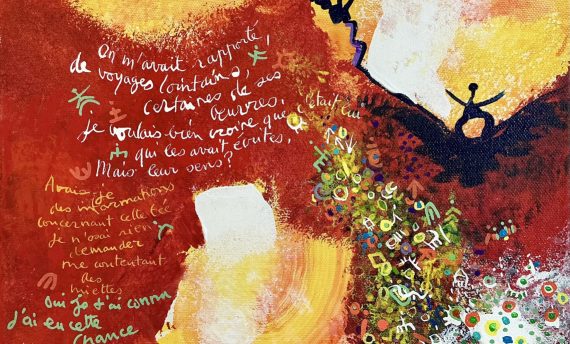 On m'avait rapporté,
de voyages lointains,
certaines de ses
œuvres,
je voulais bien croire que c'était lui
qui les avait écrites,
Mais leur sens ?
Avais-je
des informations
concernant cette
Je n'osai rien
demander
me contentant
des
miettes
Oui je l'ai connu
j'ai eu cette
chance